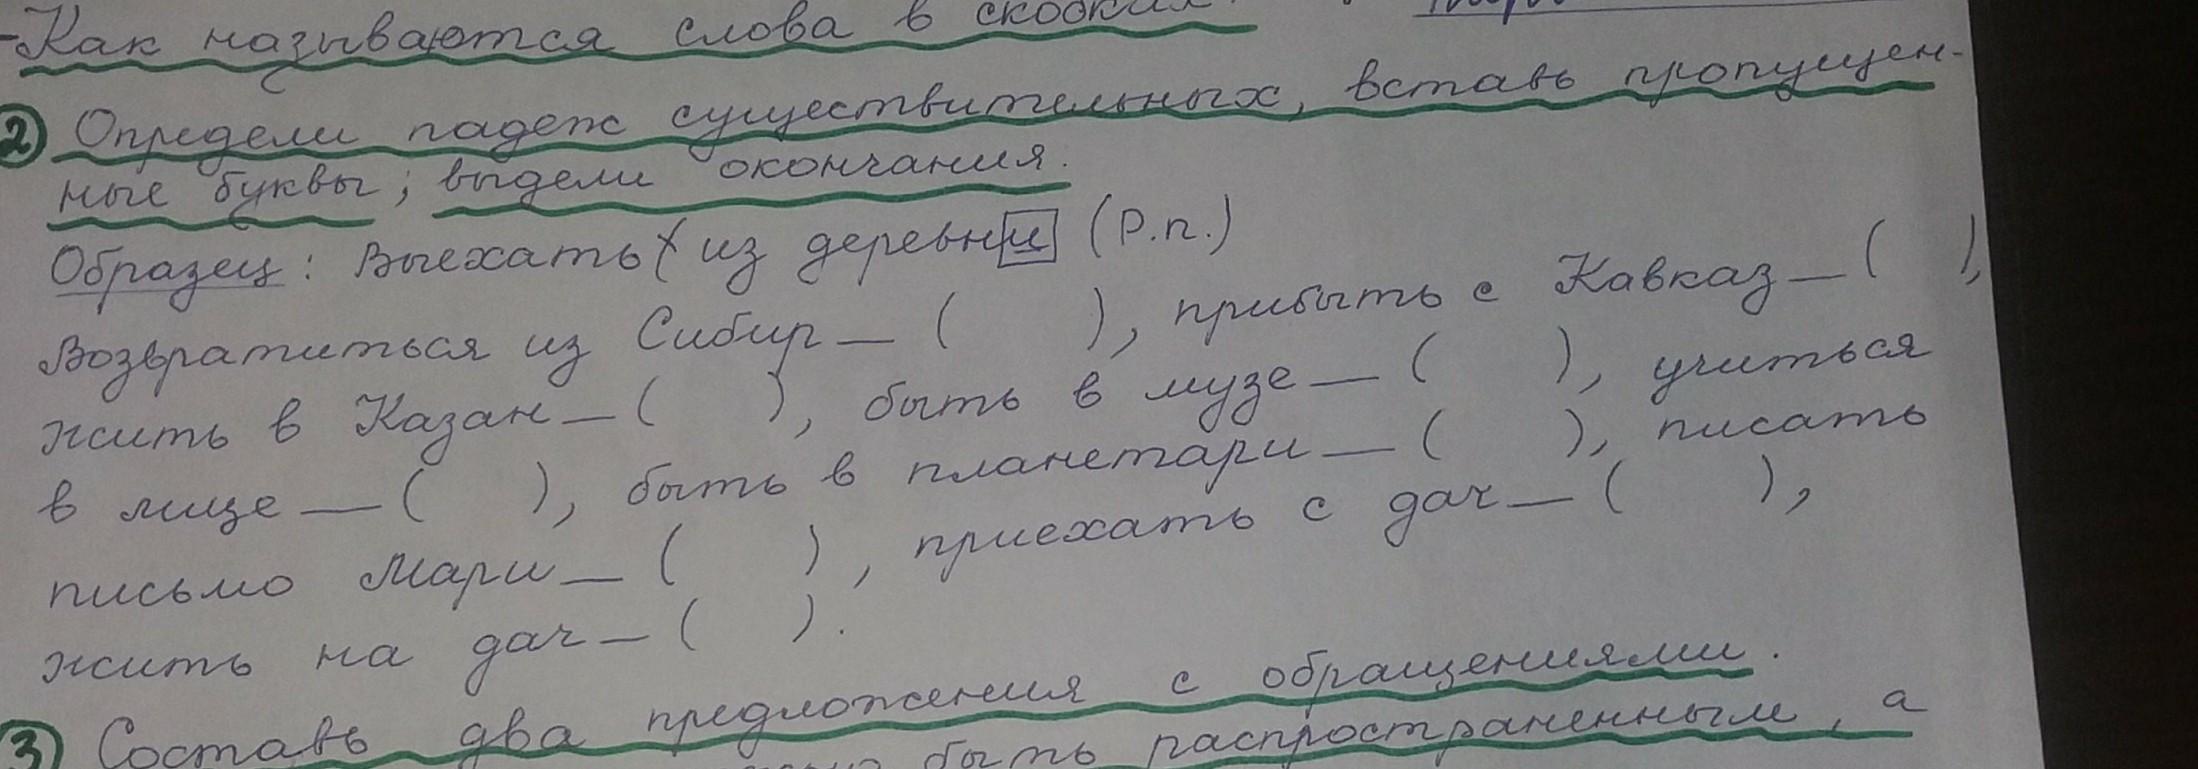 -Как называются слова в скобках
2 Определи падеж существительных, вставь пропущен-
ные буквы; выдели окончания.
Образец: Выехать (х из деревни (Р.п.)
Возвратиться из Сибир_ ( ), прибыть с Кавказ_ ( ),
жить в Казан_ ( ), быть в музе_ ( ), учиться
в лице_ ( ), быть в планетари_ ( ), писать
письмо Мари_ ( ), приехать с дач_ ( ),
жить на дач_ ( ).
3 Составь два предложения с обращениями.
быть распространенным, а